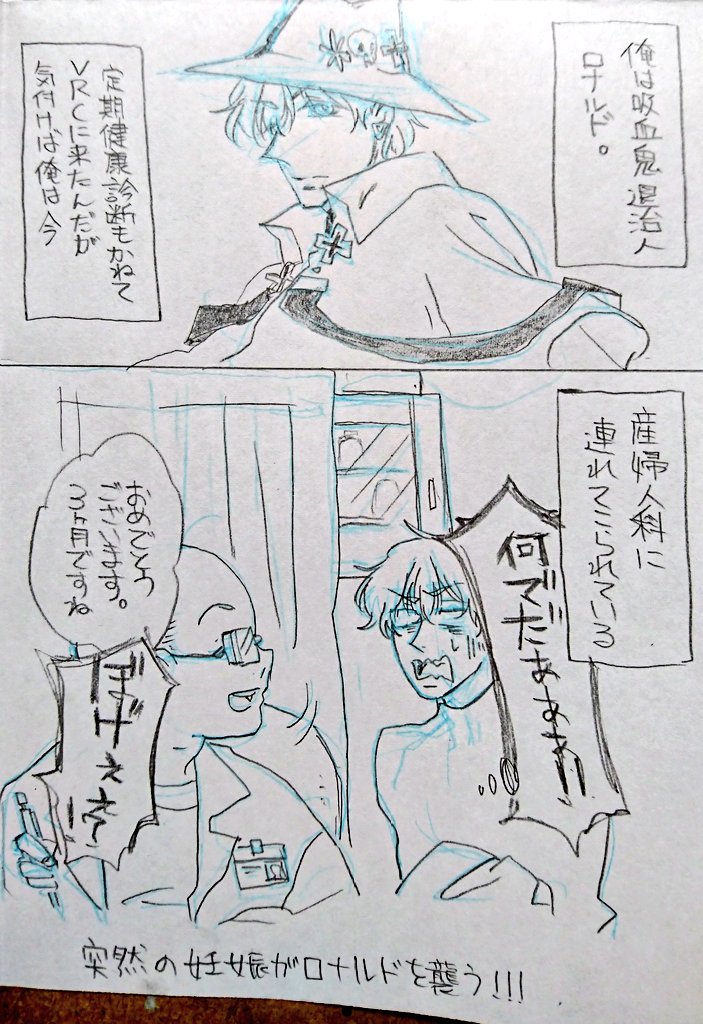 俺は吸血鬼退治人
ロナルド。
定期健康診断もかねて
VRCに来たんだが
気付けば俺は今
産婦人科に
連れてこられている
何でだぁぁあ!!
おめでとう
ございます。
3ヶ月ですね
ぼげぇええ?!
突然の妊娠がロナルドを襲う!!!